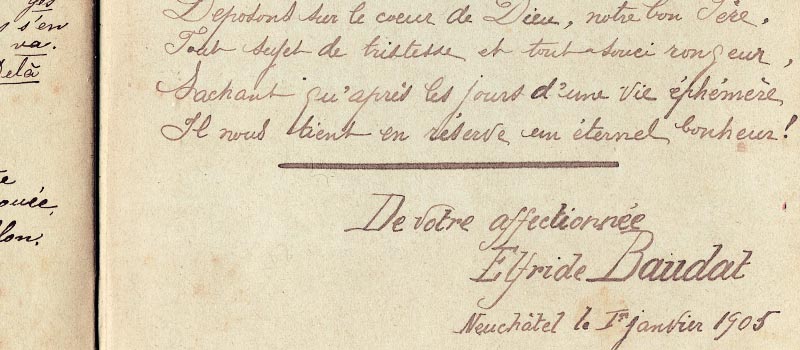 s s'en
va.
Delà
Déposons sur le coeur de Dieu, notre bon Père,
Tout sujet de tristesse et tout souci rongeur,
Sachant qu'après les jours d'une vie éphémère
Il nous tient en réserve un éternel bonheur!
De votre affectionnée
Elfride Baudat
Neuchâtel le 1r janvier 1905